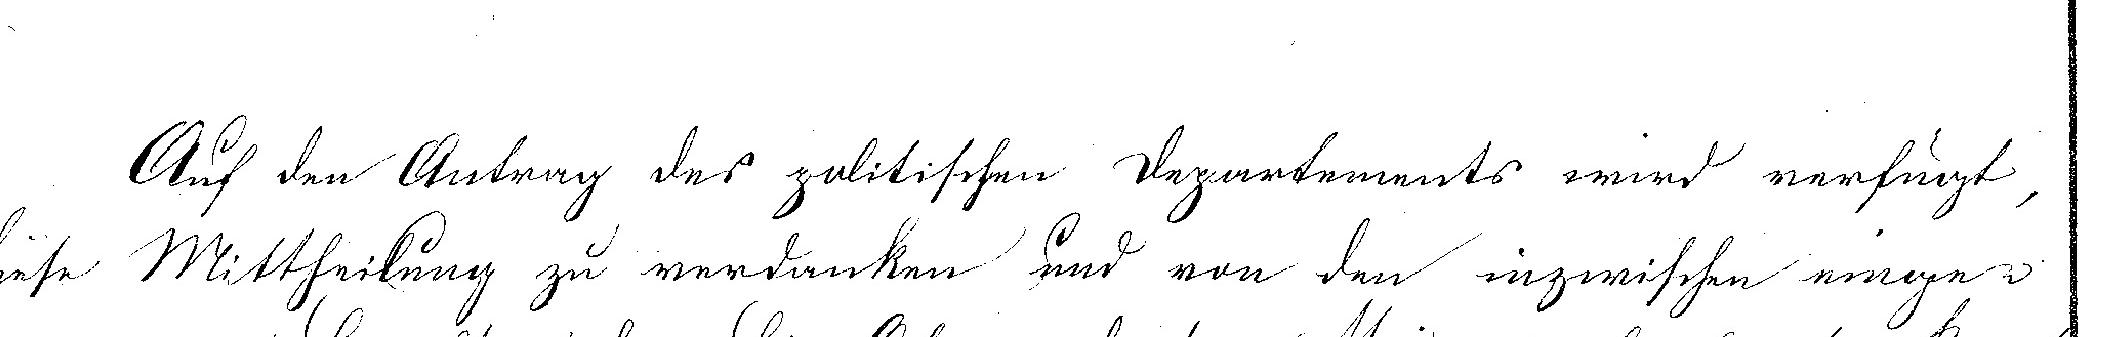 Auf den Antrag des politischen Departements wird verfügt,
Mittheilung zu verdanken und von den inzwischen einge-